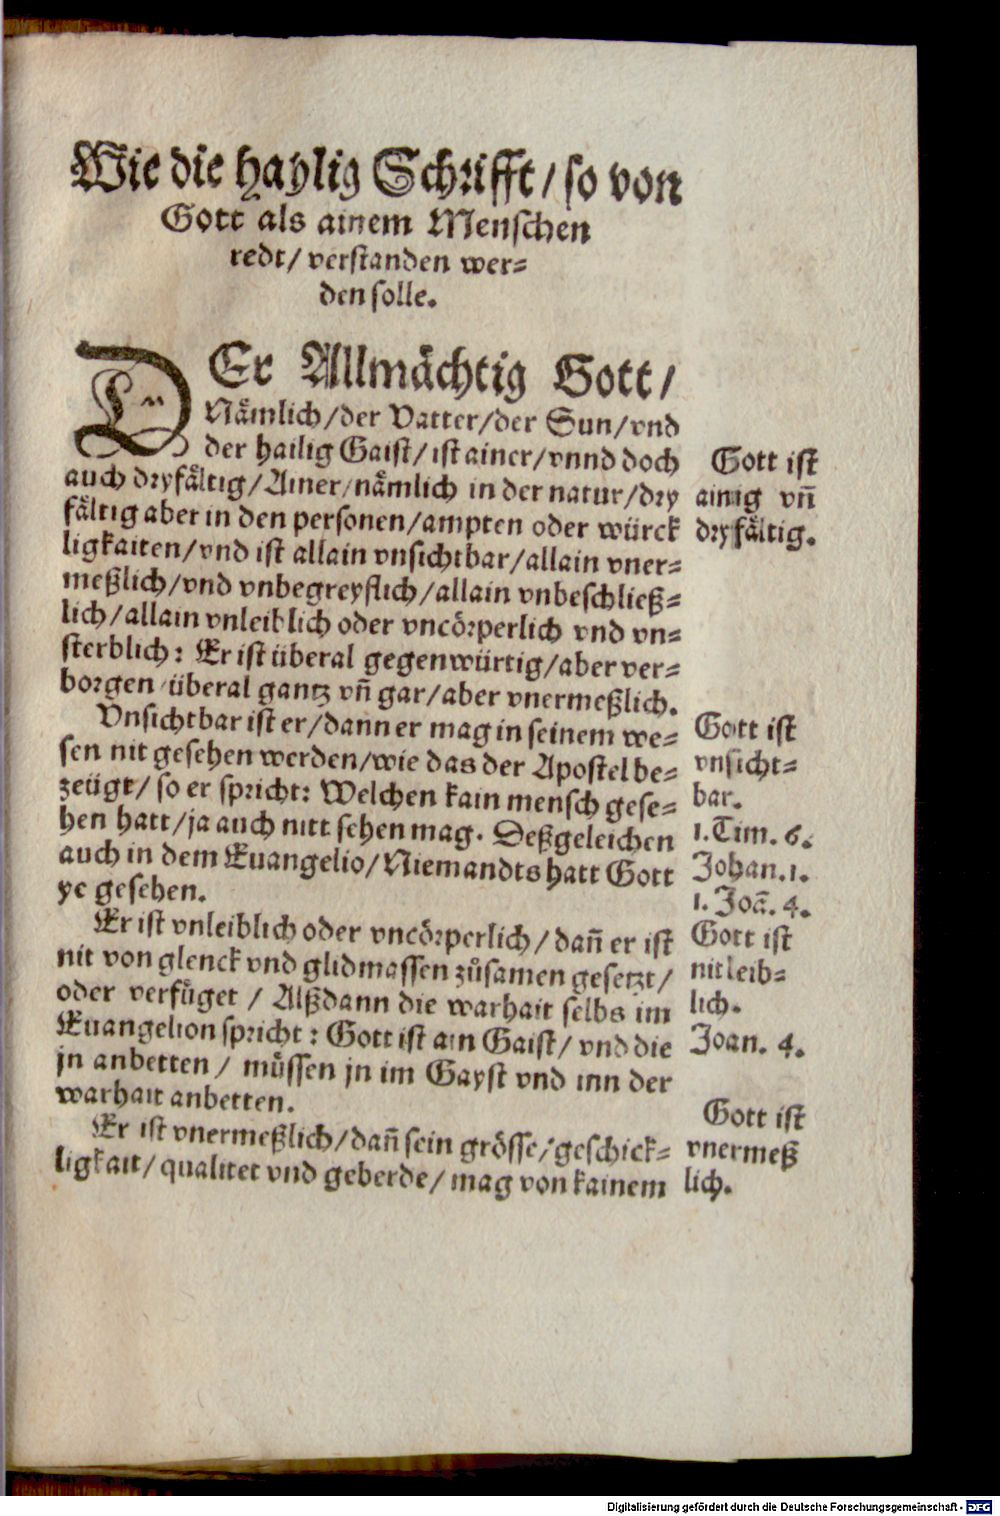 Wie die haylig Schrifft / so von
Gott als ainem Menschen
redt / verstanden wer⸗
den solle.
DEr Allmächtig Gott /
Nämlich / der Vatter / der Sun / vnd
der hailig Gaist / ist ainer / vnnd doch
auch dryfältig / Ainer / nämlich in der natur / dry
fältig aber in den personen / ampten oder würck
ligkaiten / vnd ist allain vnsichtbar / allain vner⸗
meßlich / vnd vnbegreyflich / allain vnbeschließ⸗
lich / allain vnleiblich oder vncörperlich vnd vn⸗
sterblich : Er ist überal gegenwürtig / aber ver⸗
borgen / überal gantz vñ gar / aber vnermeßlich.
Vnsichtbar ist er / dann er mag in seinem we⸗
sen nit gesehen werden / wie das der Apostel be⸗
zeügt / so er spricht : Welchen kain mensch gese⸗
hen hatt / ja auch nitt sehen mag. Deßgeleichen
auch in dem Euangelio / Niemandts hatt Gott
ye gesehen.
Er ist vnleiblich oder vncörperlich / dañ er ist
nit von glenck vnd glidmassen zůsamen gesetzt /
oder verfüget / Alßdann die warhait selbs im
Euangelion spricht : Gott ist ain Gaist / vnd die
jn anbetten / müssen jn im Gayst vnd inn der
warhait anbetten.
Er ist vnermeßlich / dañ sein grösse / geschick⸗
ligkait / qualitet vnd geberde / mag von kainem
Gott ist
ainig vñ
dryfältig.
Gott ist
vnsicht⸗
bar.
1. Tim. 6.
Johan. 1.
1. Joã. 4.
Gott ist
nit leib⸗
lich.
Joan. 4.
Gott ist
vnermeß
lich.
Digitalisierung gefördert durch die Deutsche Forschungsgemeinschaft - DFG